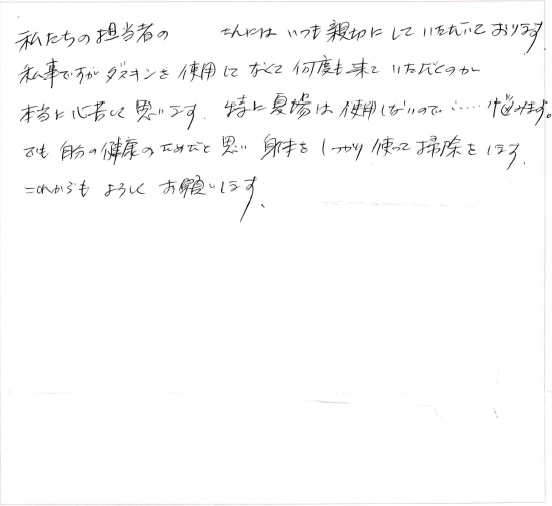 私たちの担当者の　　　さんには いつも親切にして いただいて おります.
私事ですが ダスキンを 使用して なくて 何度も来て いただくのが
本当に心苦しく思います. 特に夏場は使用しないので……悩みます。
でも 自分の健康のためだと思い 身体を しっかり使って掃除をします.
これからも よろしく お願いします.